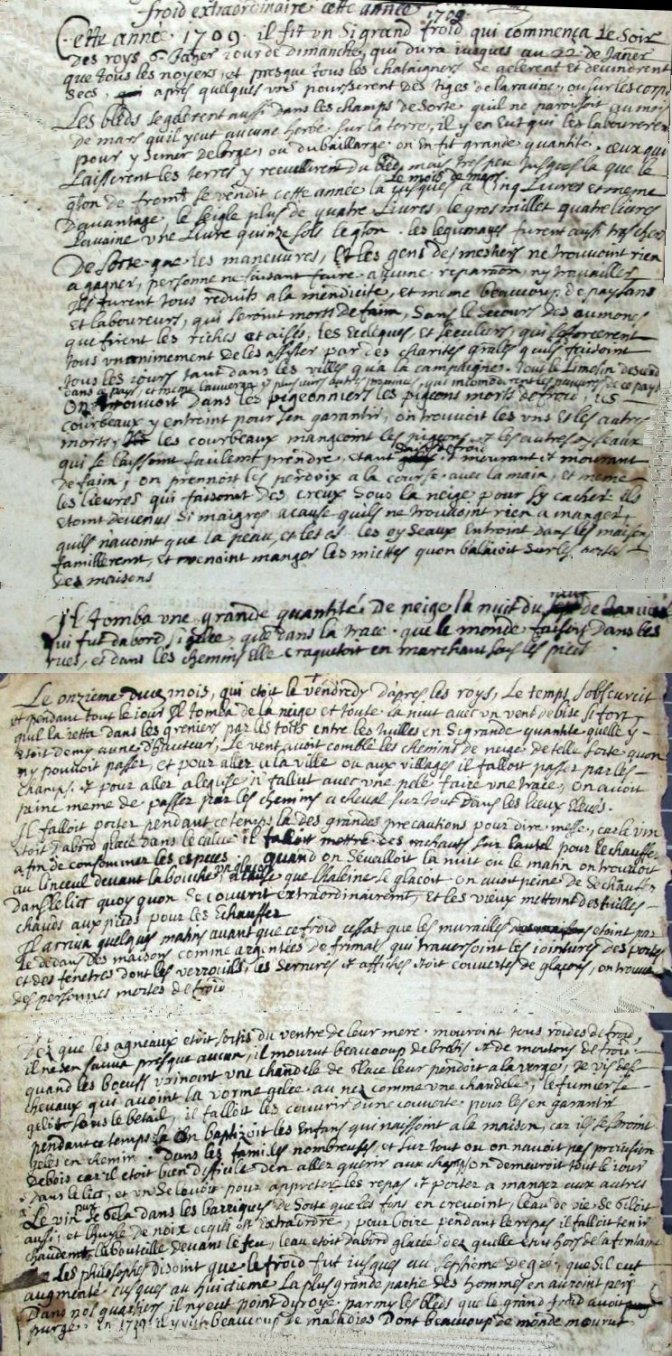 froid extraordinaire cette année 1709
Cette annee 1709. il fit un Si grand froid qui commença le Soir
Des roys 6. Janer jour de Dimanche, qui dura jusques au 22 de Janer
que tous les noyers, et presque tous les chataigners Se gelerent Et devindrent
Secs apres quelques uns pousserent des tiges De la racine, ou sur les corps
Les bleds Se gelerent aussi Dans les champs De Sorte quil ne paroissoit au mois
De mars quil y eut aucune herbe Sur la terre, il y en Eut qui les labourerent
pour y Semer De lorge, ou du baillarge on En fit grande quantite. Ceux qui
Laisserent les terres y recueillirent du bled mais tres peu Jusques la que le
le mois de mars
qton de fromt Se vendit cette année la jusques a Cinq Livres et meme
Davantage, le Seigle plus de quatre Livres, le gros millet quatre livres
Lavoine une Livre quinze Sols le qton. les legumages furent aussi tres chers
De Sorte que les maneuvres, Et les gens de mestiers ne trouvoint rien
a gagner, personne ne faisant faire aqune reparaon, ny travailler
Ils furent tous reduits a la mendicité, et meme beaucoup de paysans
Et laboureurs, qui Seroint morts de faim, Sans le Secours des aumones
que firent les riches et aisés, les Ecclques, Et Seculiers, qui Seforcerent
tous unanimement de les assister par des charites grales quils faisoint
tous les jours tant dans les villes qua la campaigne. tout le Limosin descend
dans ce pays, et meme lauvergn. y plusieurs autres provinces, qui incomoderent les pauvres de ce pays
On trouvoit Dans les pigeonniers les pigeons morts de froid, les
courbeaux y entroint pour Sen garantir, on trouvoit les uns Et les autres
morts, les courbeaux mangeoint les pigeons Et les autres oyseaux
qui Se laissoint facilemt prendre, Etant Et mourant Et mourant
De faim; on prennoit les perdrix a la course avec la main, Et meme
les lievres qui faisoint des creux Sous la neige pour Sy cacher ils
Etoint devenus Si maigres a cause quils ne trouvoint rien a manger
quils navoint que la peau, et les os. les oyseaux Entroint dans les maisons
famillierement, Et venoint manger les miettes quon balaioit Sur les portes
Des maisons
Il tomba une grande quantité De neige la nuit du de Janvier
qui fut dabord Si gelée, que dans la trace que le monde faisoit Dans les
rues, et dans les chemins Elle craquetoit en marchant Sous les pieds
Le onzieme Dud mois, qui etoit le vendredy Dapres les roys, Le temps Sobscurcit
et pendant tout le jour Il tomba de la neige et toute la nuit avec un vent de bise Si fort
quil la jetta dans les greniers par les toits entre les tuilles en Si grande quantite quelle y
Etoit demy aune D'hauteur, Le vent avoit comblé les chemins de neige de telle Sorte quon
ny pouvoit passer, et pour aller a la ville ou aux villages il falloit passer par les
champs. Et pour aller a leglise il fallut avec une pele faire une trace, on avoit
peine meme de passer par les chemins a cheval Sur tout Dans les lieux Eleves.
Il falloit porter pendant ce temps la des grandes precautions pour dire messe, car le vin
Etoit dabord glacé dans le calice il falloit mettre des rechauts Sur lautel pour le chauffer
a fin de consommer les especes. quand on Seveilloit la nuit ou le matin on trouvoit
au linceul devant la bouche un glacon a cause que lhaleine Se glaçoit on avoit peine de Se chauffer
Dans le lict quoy quon Se couvrit extraordinairement, Et les vieux mettoint des tuilles
chauds aux pieds pour les Echauffer
Il arriva quelques matins avant que ce froid cessat que les murailles etoint par
le dedans des maisons comme argentées de frimats qui traversoint les jointures des portes
et des fenetres dont les verrouils, les Serrures Et affiches Etoit couvertes de glaçons, on trouva
des personnes mortes de froid
Des que les agneaux etoit Sortis du ventre de leur mere mouroint tous roides de froid,
il ne Sen Sauva presque aucun, il mourut beaucoup de brebis Et de moutons de froid
quand les boeufs urinoint une chandele de glace leur pendoit a la verge, Je vis des
chevaux qui avoint la vorme gelée au nez comme une chandele, le fumier Se
geloit Sous le betail, il falloit les couvrir d'une couverte pour les en garantir
pendant ce temps la On baptizoit les Enfans qui naissoint a la maison, car ils Se seroint
geles en chemin. Dans les familles nombreuses, et Sur tout ou on navoit pas provision
De bois car il etoit bien difficile d'en aller querir aux champs on demeuroit tout le jour
Dans le lict, et un Se levoit pour appreter les repas, Et porter a manger aux autres
Le vin Se gela dans les barriques de Sorte que les fons en crevoint, leau de vie Se geloit
aussi, et lhuyle de noix ce qui est Extraordre, pour boire pendant le repas il falloit tenir
chaudemt la bouteille devant le feu, leau etoit dabord glacée des quelle etoit hors de la fontaine
Les philosophes disoint que le froid fut jusques au Septieme degré, que Sil eut
augmenté jusques au huictieme La plus grande partie des hommes en auroint peri
Dans nos quartiers il ny eut point dyvroye parmy les bleds que le grand froid avoit
purgé. En 1710 il y eut beaucoup de maladies Dont beaucoup de monde mourut